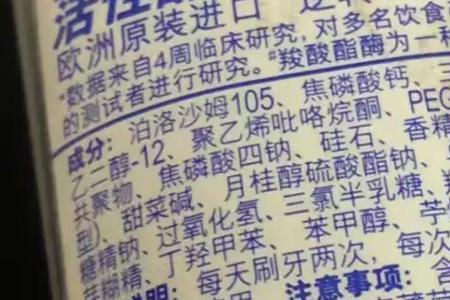 活性
欧洲原装进口
*数据来自4周临床研究，对多名饮食
的测试者进行研究。#羧酸酯酶为一种
成分：泊洛沙姆105、焦磷酸钙、三
乙二醇-12、聚乙烯吡咯烷酮、PEG
共聚物、焦磷酸四钠、硅石、香精
型）、甜菜碱、月桂醇硫酸酯钠、
糖精钠、过氧化氢、三氯半乳糖、
蒜糊精、丁羟甲苯、苯甲醇、
说明：每天刷牙两次，每次
注意事项：含